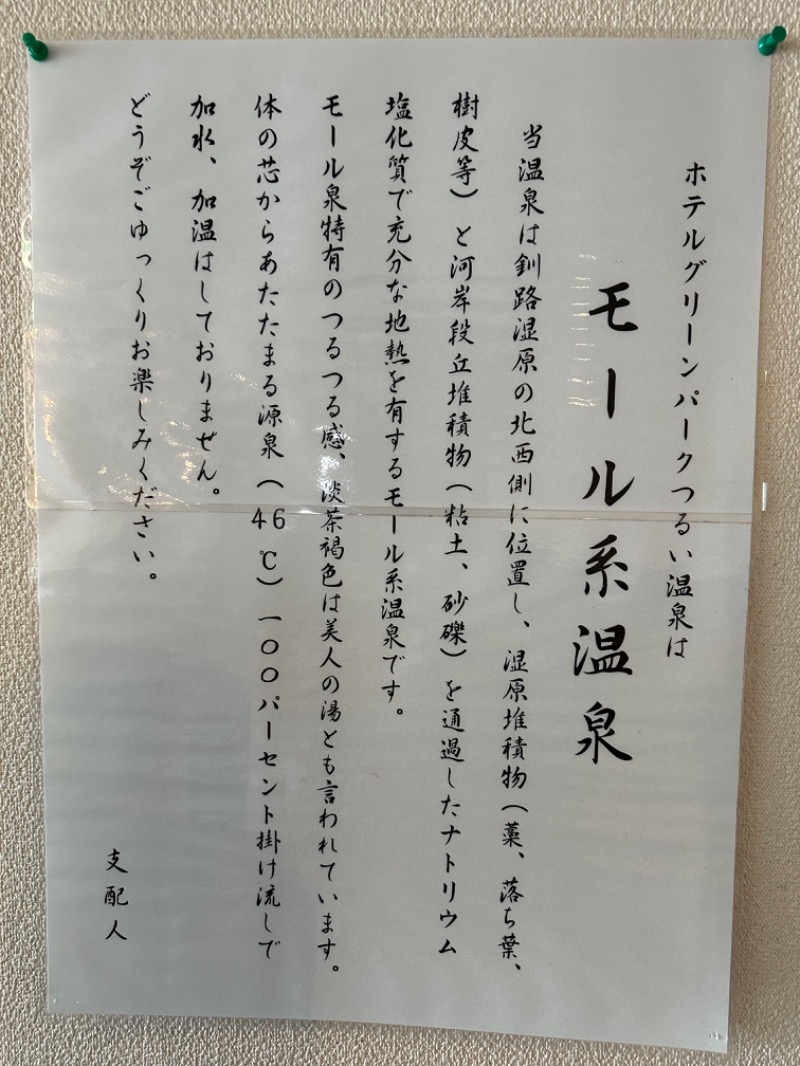 ホテルグリーンパークつるい温泉は
モール系温泉
当温泉は釧路湿原の北西側に位置し、湿原堆積物（藁、落ち葉、
樹皮等）と河岸段丘堆積物（粘土、砂礫）を通過したナトリウム
塩化質で充分な地熱を有するモール系温泉です。
モール泉特有のつるつる感、淡茶褐色は美人の湯とも言われています。
体の芯からあたたまる源泉（46℃）一〇〇パーセント掛け流しで
加水、加温はしておりません。
どうぞごゆっくりお楽しみください。
支配人